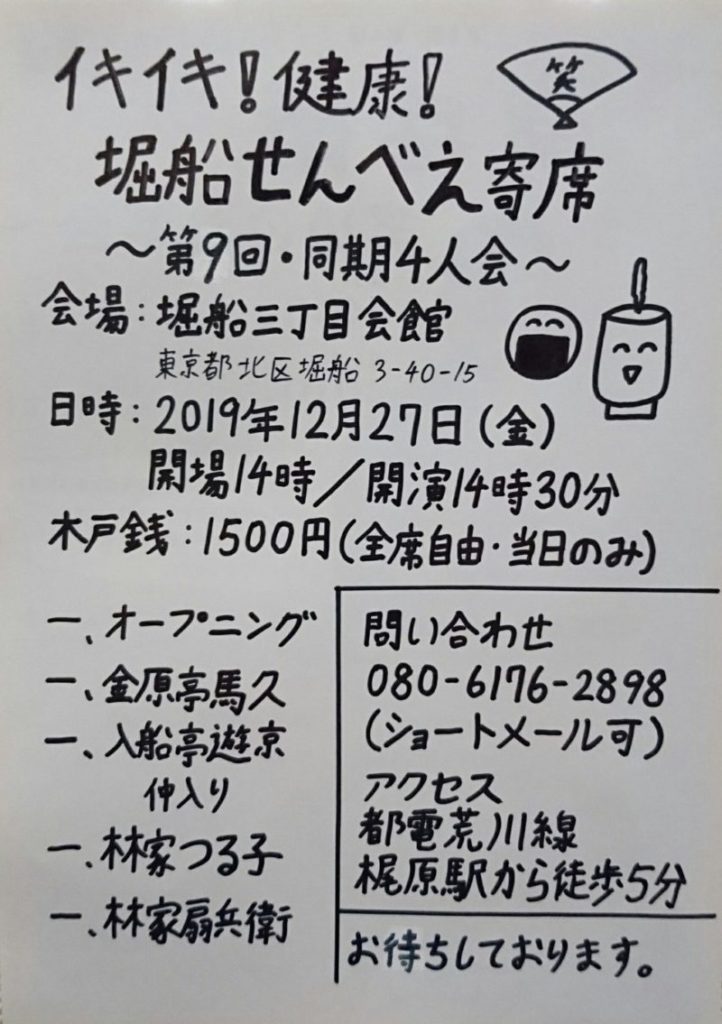 イキイキ!健康!
笑
堀船せんべえ寄席
～第9回・同期4人会～
会場:堀船三丁目会館
東京都北区堀船 3-40-15
日時:2019年12月27日(金)
開場14時/開演14時30分
木戸銭:1500円(全席自由・当日のみ)
一、オープニング
一、金原亭馬久
一、入船亭遊京
仲入り
一、林家つる子
一、林家扇兵衛
問い合わせ
080-6176-2898
(ショートメール可)
アクセス
都電荒川線
梶原駅から徒歩5分
お待ちしております。